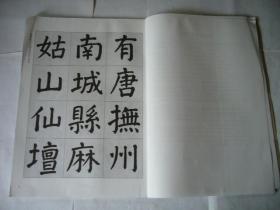 有唐撫州
南城縣麻
姑山仙壇